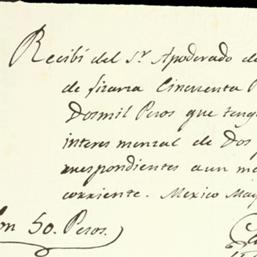 Recibí del Sr. Apoderado de
de
Cincuenta P
Dosmil Pesos que teng
interes menzal de Dos
rrespondientes a un me
corriente. Mexico May
on 50. Pesos.